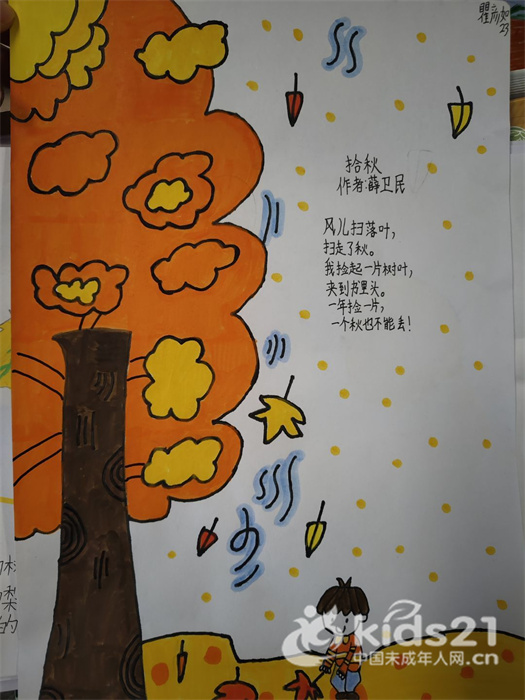 瞿彦如
23
拾秋
作者:薛卫民
风儿扫落叶，
扫走了秋。
我捡起一片树叶，
夹到书里头。
一年捡一片，
一个秋也不能丢！
梨
的
kids21
中国未成年人网.cn